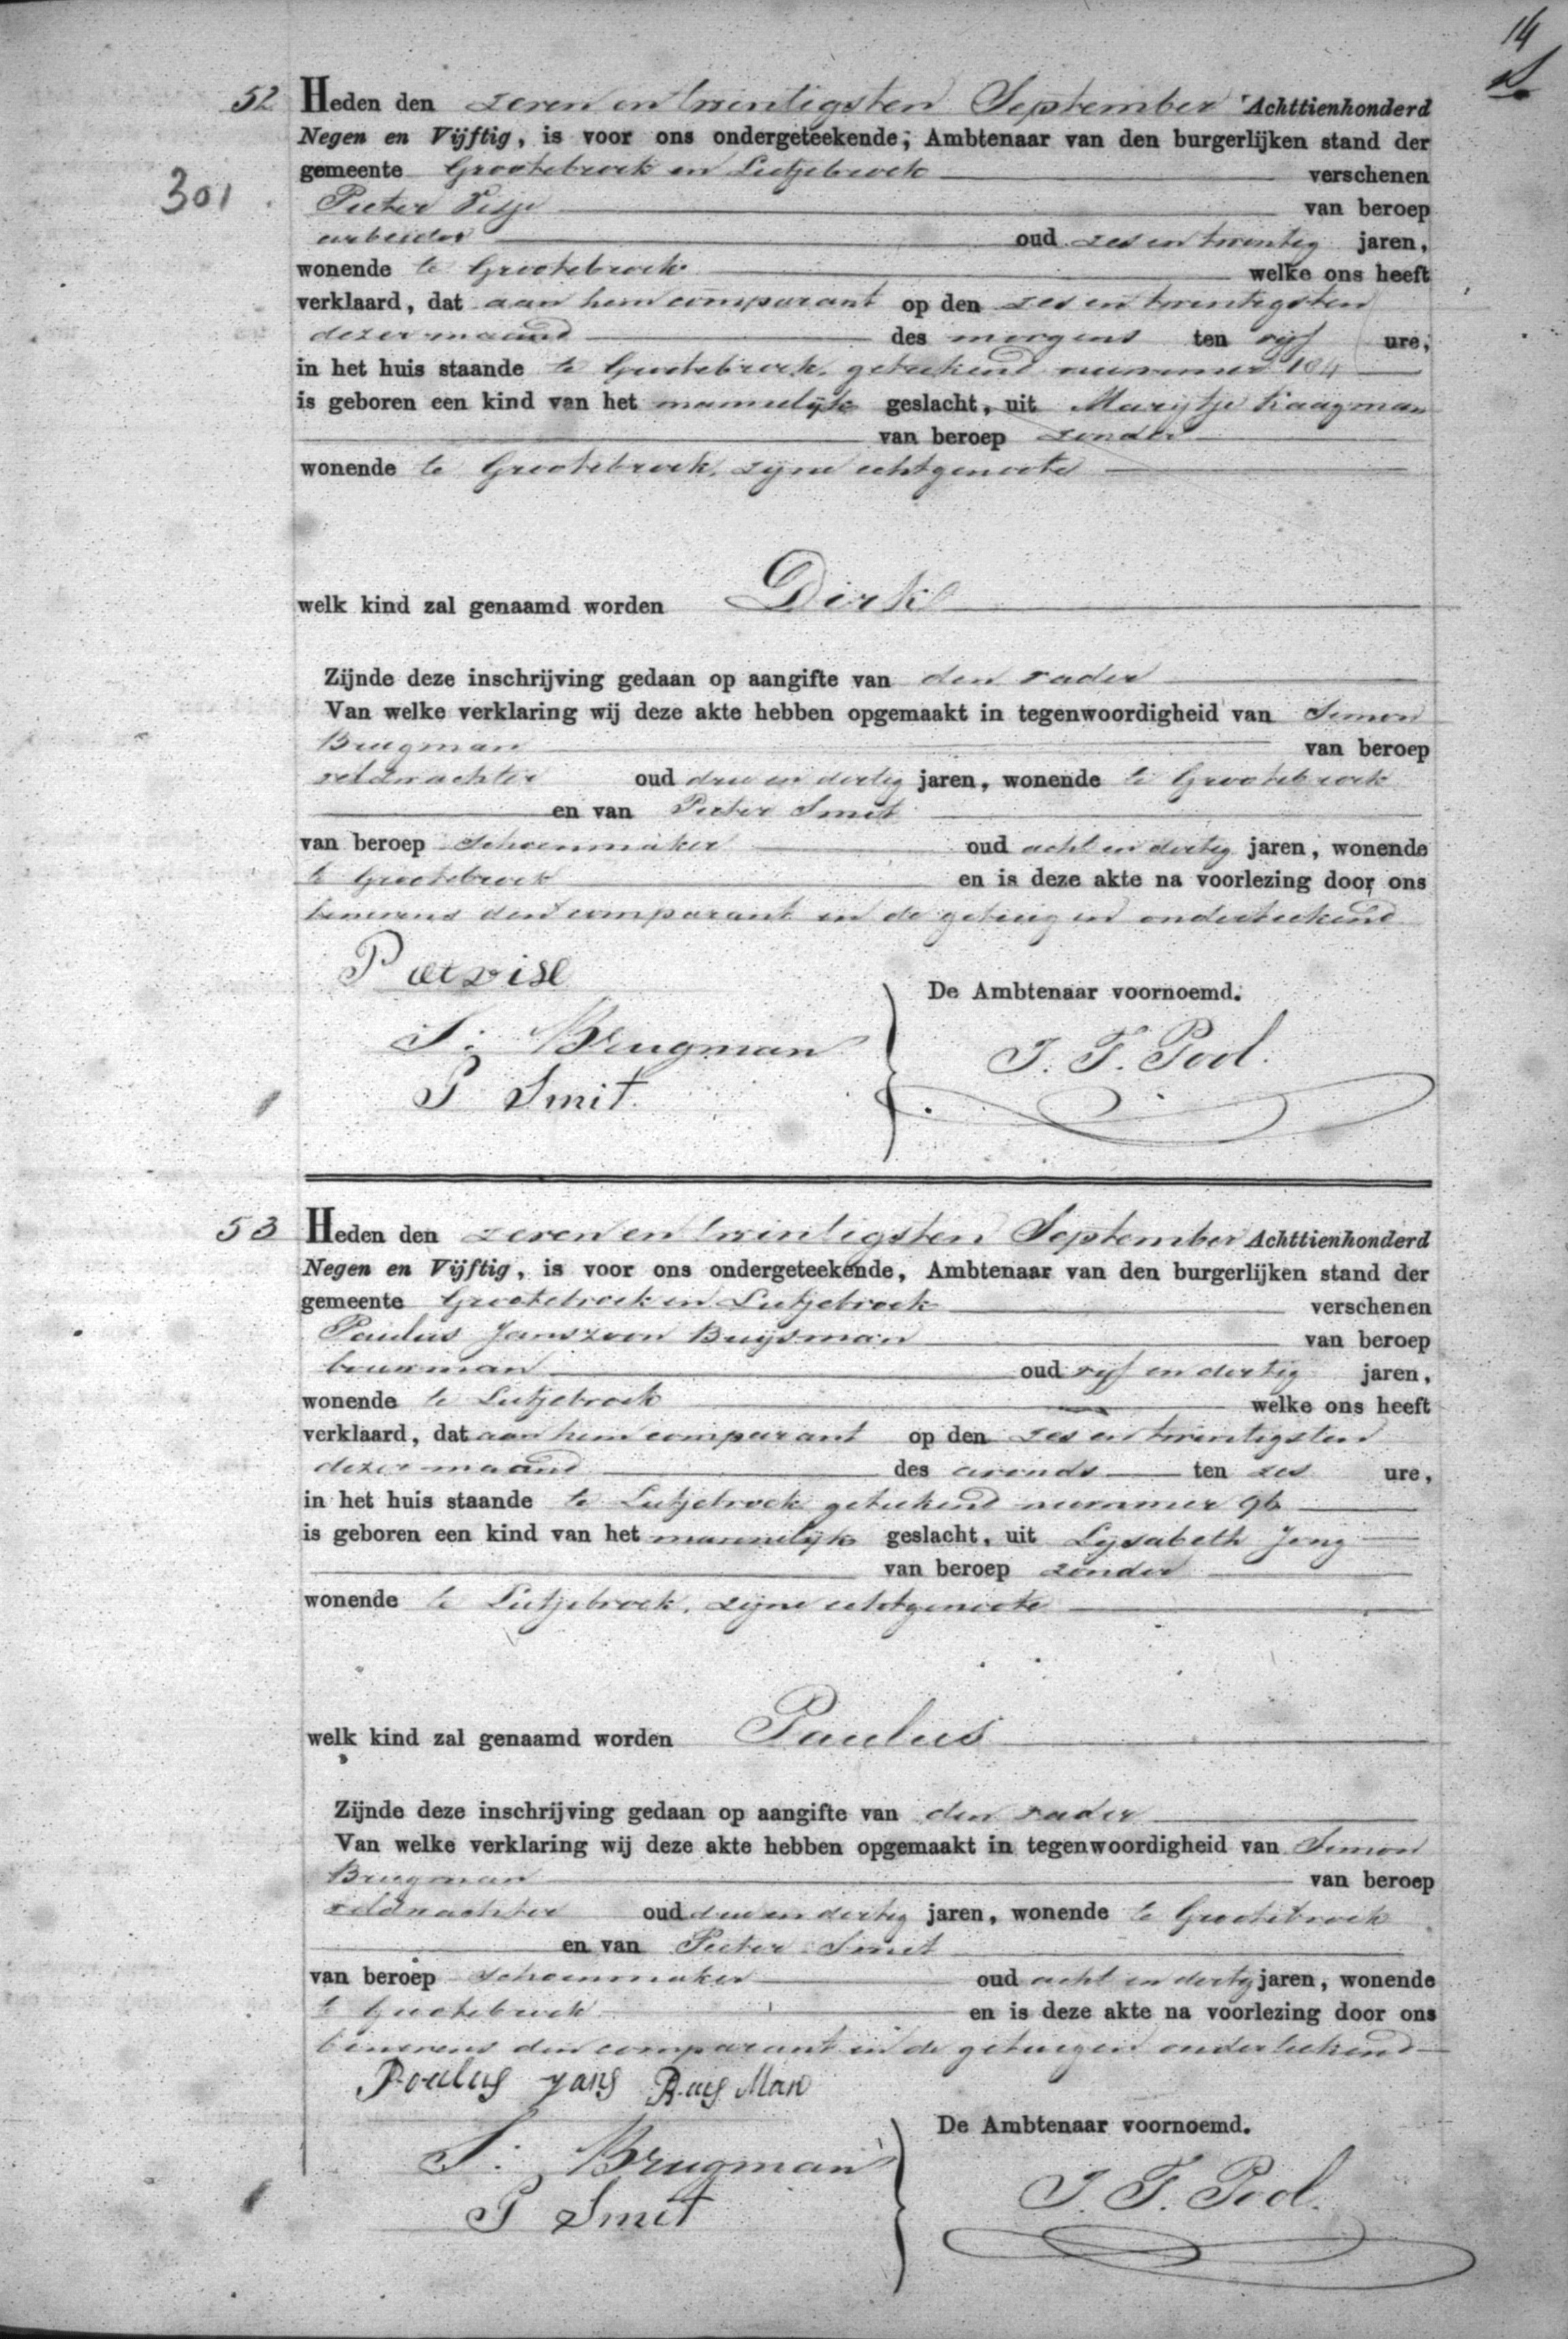 14
52 Heden den zeven en twintigsten September Achttienhonderd
Negen en Vijftig, is voor ons ondergeteekende, Ambtenaar van den burgerlijken stand der
gemeente Grootebroek en Lutjebroek verschenen
301
Pieter Visje van beroep
arbeider oud zes en twintig jaren,
wonende te Grootebroek welke ons heeft
verklaard, dat aan hem comparant op den zes en twintigsten
dezer maand des morgens ten vijf ure,
in het huis staande te Grootebroek, geteekend nummer 104
is geboren een kind van het mannelijk geslacht, uit Marijtje Kaagman
van beroep zonder
wonende te Grootebroek, zijne echtgenoote
welk kind zal genaamd worden Dirk
Zijnde deze inschrijving gedaan op aangifte van den vader
Van welke verklaring wij deze akte hebben opgemaakt in tegenwoordigheid van Simon
Brugman van beroep
veldwachter oud drie en dertig jaren, wonende te Grootebroek
en van Pieter Smit
van beroep schoenmaker oud acht en dertig jaren, wonende
te Grootebroek en is deze akte na voorlezing door ons
benevens den comparant en de getuigen onderteekend
De Ambtenaar voornoemd.
S. Brugman J. F. Pool.
P Smit
53 Heden den zeven en twintigsten September Achttienhonderd
Negen en Vijftig, is voor ons ondergeteekende, Ambtenaar van den burgerlijken stand der
gemeente Grootebroek en Lutjebroek verschenen
Paulus Janszoon Buijsman van beroep
bouwman oud vijf en dertig jaren,
wonende te Lutjebroek welke ons heeft
verklaard, dat aan hem comparant op den zes en twintigsten
dezer maand des avonds ten zes ure,
in het huis staande te Lutjebroek geteekend nummer 96
is geboren een kind van het mannelijk geslacht, uit Lijsabeth Jong
van beroep zonder
wonende te Lutjebroek, zijne echtgenoote
welk kind zal genaamd worden Paulus
Zijnde deze inschrijving gedaan op aangifte van den vader
Van welke verklaring wij deze akte hebben opgemaakt in tegenwoordigheid van Simon
Brugman van beroep
veldwachter oud drie en dertig jaren, wonende te Grootebroek
en van Pieter Smit
van beroep schoenmaker oud acht en dertig jaren, wonende
te Grootebroek en is deze akte na voorlezing door ons
benevens den comparant en de getuigen onderteekend
Poulus yans Buys Man
De Ambtenaar voornoemd.
S. Brugman J. F. Pool.
P Smit